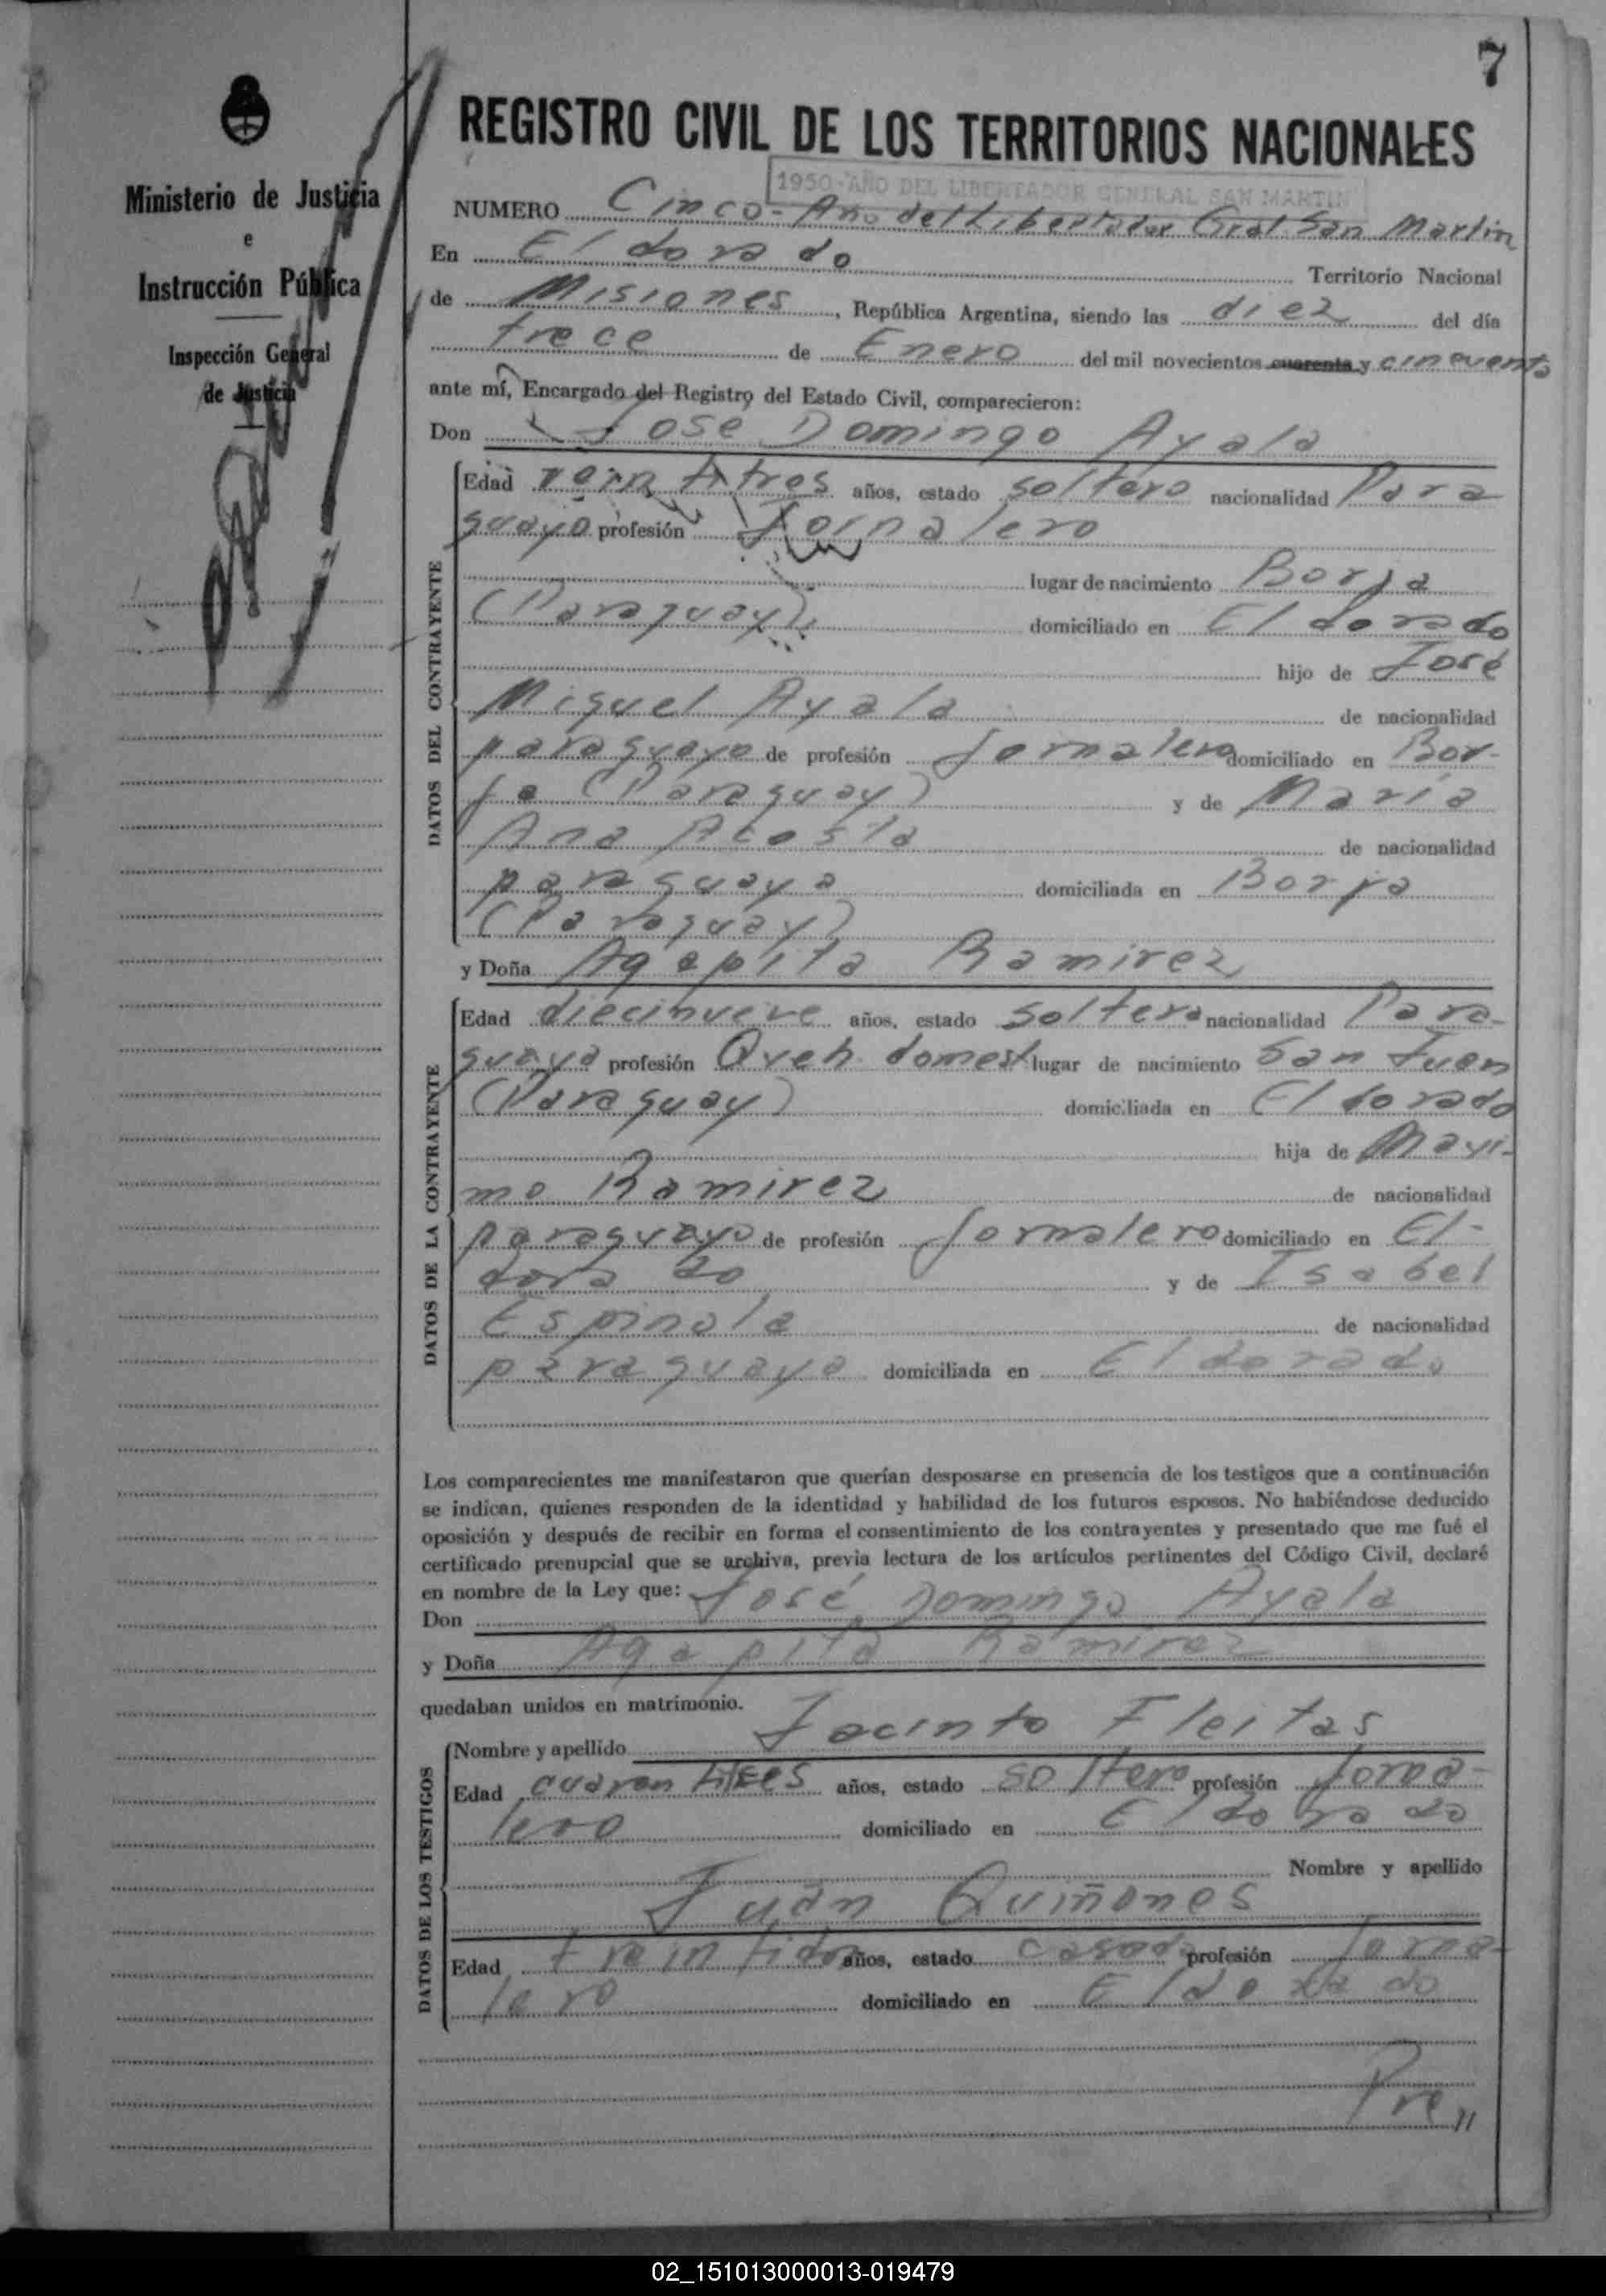 7
Ministerio de Justicia
e
Instrucción Pública
Inspección General
de Justicia
REGISTRO CIVIL DE LOS TERRITORIOS NACIONALES
1950-AÑO DEL LIBERTADOR GENERAL SAN MARTIN
NUMERO Cinco - Año del Libertador Gral San Martin
En Eldorado Territorio Nacional
de Misiones, República Argentina, siendo las diez del día
trece de Enero del mil novecientos cuarenta y cincuenta
ante mí, Encargado del Registro del Estado Civil, comparecieron:
Don Jose Domingo Ayala
DATOS DEL CONTRAYENTE
Edad veintitres años, estado soltero nacionalidad Para
guayo profesión Jornalero
lugar de nacimiento Borja
(Paraguay) domiciliado en Eldorado
hijo de José
Miguel Ayala de nacionalidad
paraguayo de profesión Jornalero domiciliado en Bor-
ja (Paraguay) y de María
Ana Acosta de nacionalidad
paraguaya domiciliada en Borja
(Paraguay)
y Doña Agapita Ramirez
DATOS DE LA CONTRAYENTE
Edad diecinueve años, estado soltera nacionalidad Para-
guaya profesión Queh. domest lugar de nacimiento San Juan
(Paraguay) domiciliada en Eldorado
hija de Maxi-
mo Ramirez de nacionalidad
paraguayo de profesión Jornalero domiciliado en El-
dorado y de Isabel
Espinola de nacionalidad
paraguaya domiciliada en Eldorado
Los comparecientes me manifestaron que querían desposarse en presencia de los testigos que a continuación
se indican, quienes responden de la identidad y habilidad de los futuros esposos. No habiéndose deducido
oposición y después de recibir en forma el consentimiento de los contrayentes y presentado que me fué el
certificado prenupcial que se archiva, previa lectura de los artículos pertinentes del Código Civil, declaré
en nombre de la Ley que:
Don José Domingo Ayala
y Doña Agapita Ramirez
quedaban unidos en matrimonio.
DATOS DE LOS TESTIGOS
Nombre y apellido Jacinto Fleitas
Edad cuarentitres años, estado soltero profesión Jorna-
lero domiciliado en Eldorado
Nombre y apellido
Juan Quiñones
Edad treintidos años, estado casado profesión Jorna-
lero domiciliado en Eldorado
Pre,,
02_151013000013-019479